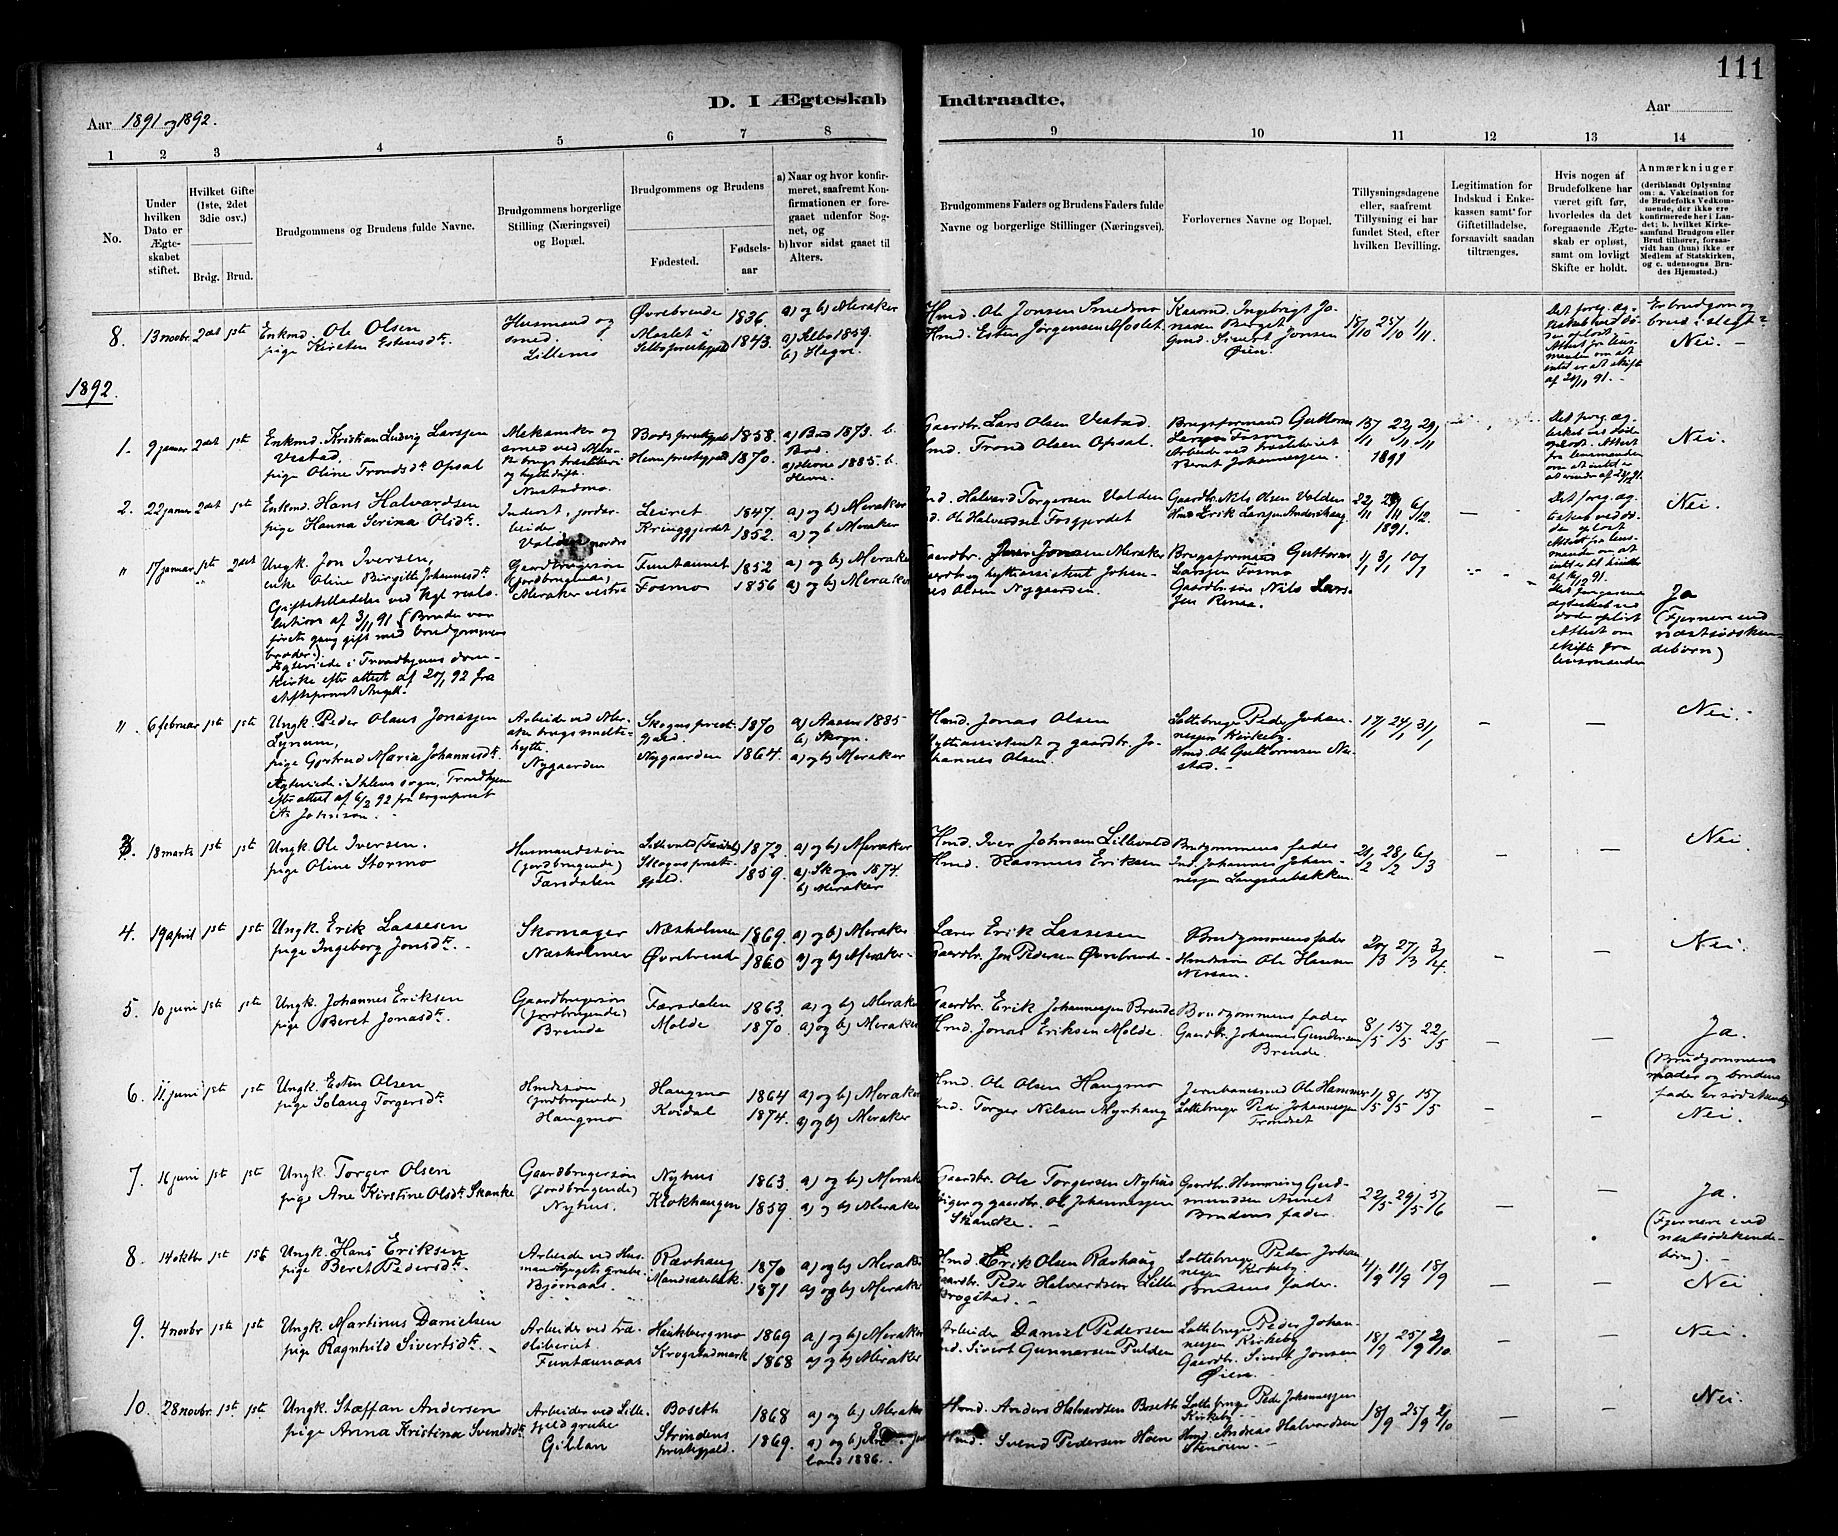 111
D. I Ægteskab Indtraadte.
Aar 1891 og 1892. Aar
1 2 3 4 5 6 7 8 9 10 11 12 13 14
No.
Under hvilken Dato er Ægteskabet stiftet.
Hvilket Gifte (1ste, 2det 3die osv.)
Brdg. Brud.
Brudgommens og Brudens fulde Navne.
Brudgommens borgerlige Stilling (Næringsvei) og Bopæl.
Brudgommens og Brudens
Fødested. Fødsels-aar
a) Naar og hvor konfirmeret, saafremt Konfirmationen er foregaaet udenfor Sognet, og
b) hvor sidst gaaet til Alters.
Brudgommens Faders og Brudens Faders fulde Navne og borgerlige Stillinger (Næringsvei).
Forlovernes Navne og Bopæl.
Tillysningsdagene eller, saafremt Tillysning ei har fundet Sted, efter hvilken Bevilling.
Legitimation for Indskud i Enkekassen samt for Giftetilladelse, forsaavidt saadan tiltrænges.
Hvis nogen af Brudefolkene har været gift før, hvorledes da det foregaaende Ægteskab er opløst, samt om lovligt Skifte er holdt.
Anmærkninger
(deriblandt Oplysning om: a. Vakcination for de Brudefolks Vedkommende, der ikke ere konfirmerede her i Landet; b. hvilket Kirkesamfund Brudgom eller Brud tilhører, forsaavidt han (hun) ikke er Medlem af Statskirken, og c. udensogns Brudes Hjemsted.)
8. 13 novbr. 2det 1ste
Enkmd. Ole Olsen
pige Kirsten Estensdtr.
Husmand og
smed.
Lillemo
Øvrebrende 1836.
Moslet i
Selbo prestegjeld 1843.
a) og b) Meraker
a) Selbo 1859.
b) Hegre.
Hmd. Ole Jonsen Smedmo
Hmd. Esten Jørgensen Moslet.
Kaarmd. Ingebrigt Jonasen Berget
Gmd. Sivert Jonsen
Øien.
18/10 25/10 1/11.
Det foreg. ægteskab ved død opløst.
Attest fra lensmanden om at intet er at skifte
af 24/10 91.
Er brudgom og brud i slegt?
Nei.
1892.
1. 9 januar 2det 1ste
Enkmd. Kristian Ludvig Larssen
Vestad.
pige Oline Trondsdtr. Opsal
Mekaniker og
smed ved Meraker brugs træsliberi
og hyttedrift.
Nustadmo.
Bods prestegjeld 1858.
Hevne prestegjeld 1870.
a) Bud 1873. b.
Bos.
a) Hevne 1885. b.
Hevne.
Gaardbr. Lars Olsen Vestad.
Hmd. Trond Olsen Opsal.
Brugsformand Guttorm
Larssen Fosmo
Arbeider ved træsliberiet
Bernt Johannessen.
15/11 22/11 29/11
1891
Nei.
2. 22 januar 2det 1ste
Enkmd. Hans Halvardsen
pige Hanna Serina Olsdtr.
Inderst, jordarbeider
Valden nordre
Leiret 1847.
Kringgjerdet 1852.
a) og b) Meraker
a) og b) Meraker
Ind. Halvard Torgersen Valden
Hmd. Ole Halvardsen Fosgjerdet
Gaardbr. Nils Olsen Valden
Hmd. Erik Larsen Andershaug
22/11 29/11 6/12.
1891.
Nei.
" 17 januar 1ste 2det
Ungk. Jon Iversen,
enke Oline Birgitte Johannesdtr.
Giftetilladelse ved kgl. resolution af 3/11 91 (Bruden var
første gang gift med brudgommens
broder.)
Ægteviede i Trondhjems domkirke efter attest af 20/1 92 fra
stiftsprovst
Gaardbrugersøn
(jordbrugende)
Meraker vestre
Funtaunet 1852
Fosmo 1856
a) og b) Meraker
a) og b) Meraker
Gaardbr. Iver Jonsen Meraker
Gaardbr. og hytteassistent Johannes Olsen Nygaarden.
Brugsformand Guttorm
Larssen Fosmo
Gaardbrsøn Nils Larssen Renaa.
1/1 3/1 10/1
Det foregaaende
ægteskab ved
døden opløst
Attest om
skifte fra
lensmanden
Ja
(Fjernere end
næstsødskendebørn)
" 6 februar 1ste 1ste
Ungk. Peder Olaus Jonassen
Lynum,
pige Gjertrud Maria Johannesdtr.
Ægteviede i Ihlens sogn, Trondhjem
efter attest af 6/2 92 fra sogneprest
Johnson.
Arbeider ved Meraker brugs smeltehytte.
Nygaarden
Skogns prestegjeld. 1870
Nygaarden 1864.
a) Aasen 1885
b) Skogn.
a) og b) Meraker
Hmd. Jonas Olsen
Hytteassistent og gaardbr. Johannes Olsen.
Lottebruger Peder Johannessen Kirkeby.
Hmd. Ole Guttormsen Nustad.
17/1 24/1 31/1
Nei.
3. 18 marts 1ste 1ste
Ungk. Ole Iversen.
pige Oline Stormo
Husmandssøn
(jordbrugende)
Farsdalen
Lillevold (Færsdal) 1872.
Skogns prestegjeld. 1859.
a) og b) Meraker
a) Skogn 1874.
b) Meraker
Hmd. Iver Johnsen Lillevold
Hmd. Rasmus Eriksen
Brudgommens fader
Ind. Johannes Johannessen Langsaabakken.
21/2 28/2 6/3
Nei
4. 19 april 1ste 1ste
Ungk. Erik Lassesen
pige Ingeborg Jonsdtr.
Skomager
Næsholmen
Næsholmen 1869.
Øvrebrende 1860
a) og b) Meraker
a) og b) Meraker
Lærer Erik Lassesen
Gaardbr. Jon Pedersen Øvrebrende
Brudgommens fader
Hmdssøn Ole Hansen
Nersaan.
20/3 27/3 3/4
Nei.
5. 10 juni 1ste 1ste
Ungk. Johannes Eriksen
pige Beret Jonasdtr.
Gaardbrugersøn
(jordbrugende)
Brende
Færsdalen 1863
Molde 1870.
a) og b) Meraker
a) og b) Meraker
Gaardbr. Erik Johannessen Brende
Hmd. Jonas Eriksen Molde
Brudgommens fader
Gaardbr. Johannes Gundersen
Brende.
8/5 15/5 22/5
Ja.
(Brudgommens
fader og brudens
fader er sødskende)
6. 11 juni 1ste 1ste
Ungk. Esten Olsen
pige Solaug Torgersdtr.
Hmdssøn
(jordbrugende)
Haugmo
Haugmo 1864
Kvidal 1874.
a) og b) Meraker
a) og b) Meraker
Hmd. Ole Olsen Haugmo
Hmd. Torger Nilsen Myrhaug
Jernbanesmed Ole Hammer
Lottebruger Peder Johannessen
Trondset
1/5 8/5 15/5
Nei.
7. 16 juni 1ste 1ste
Ungk. Torger Olsen
pige Ane Kirstine Olsdtr. Skanke
Gaardbrugersøn
(jordbrugende)
Nyhus.
Nyhus 1863.
Klokhaugen 1859.
a) og b) Meraker
a) og b) Meraker
Gaardbr. Ole Torgersen Nyhus
Stiger og gaardbr. Ole Johannessen
Skancke.
Gaardbr. Henning Gudmundsen Annet
Brudens fader.
22/5 29/5 5/6
Ja.
(Fjernere end
næstsødskendebørn).
8. 14 oktbr 1ste 1ste
Ungk. Hans Eriksen
pige Beret Pedersdtr.
Arbeider ved Husmandsbygets grube.
Bjørnaas
Rævhaug 1870
Mandsæterbak. 1871
a) og b) Meraker
a) og b) Meraker
Hmd. Erik Olsen Rævhaug
Gaardbr. Peder Halvardsen Lille
Krogstad.
Lottebruger Peder Johannessen Kirkeby
Brudens fader.
4/9 11/9 18/9
Nei
9. 4 novbr 1ste 1ste
Ungk. Martinus Danielsen
pige Ragnhild Sivertsdtr.
Arbeider ved træsliberiet
Funtaunaas
Haukbergmo 1869
Krogstadmark 1868
a) og b) Meraker
a) og b) Meraker
Arbeider Daniel Pedersen
Ind. Sivert Gunnarsen Fulden
Lottebruger Peder Johannessen Kirkeby
Gaardbr. Sivert Jonsen
Øien
18/9 25/9 2/10.
Nei.
10. 28 novbr. 1ste 1ste
Ungk. Steffan Andersen
pige Anna Kristina Svendsdtr.
Arbeider ved Lillefjeld grube
Gillan
Boseth 1868
Strindens
prestegjeld. 1869.
a) og b) Meraker
land 1886.
Hmd. Anders Halvardsen Boseth
Hmd. Svend Pedersen Hoen
Lottebruger Peder Johannessen
Kirkeby.
Hmd. Andreas Halvardsen
Stenøien
18/9 25/9 2/10
Nei.